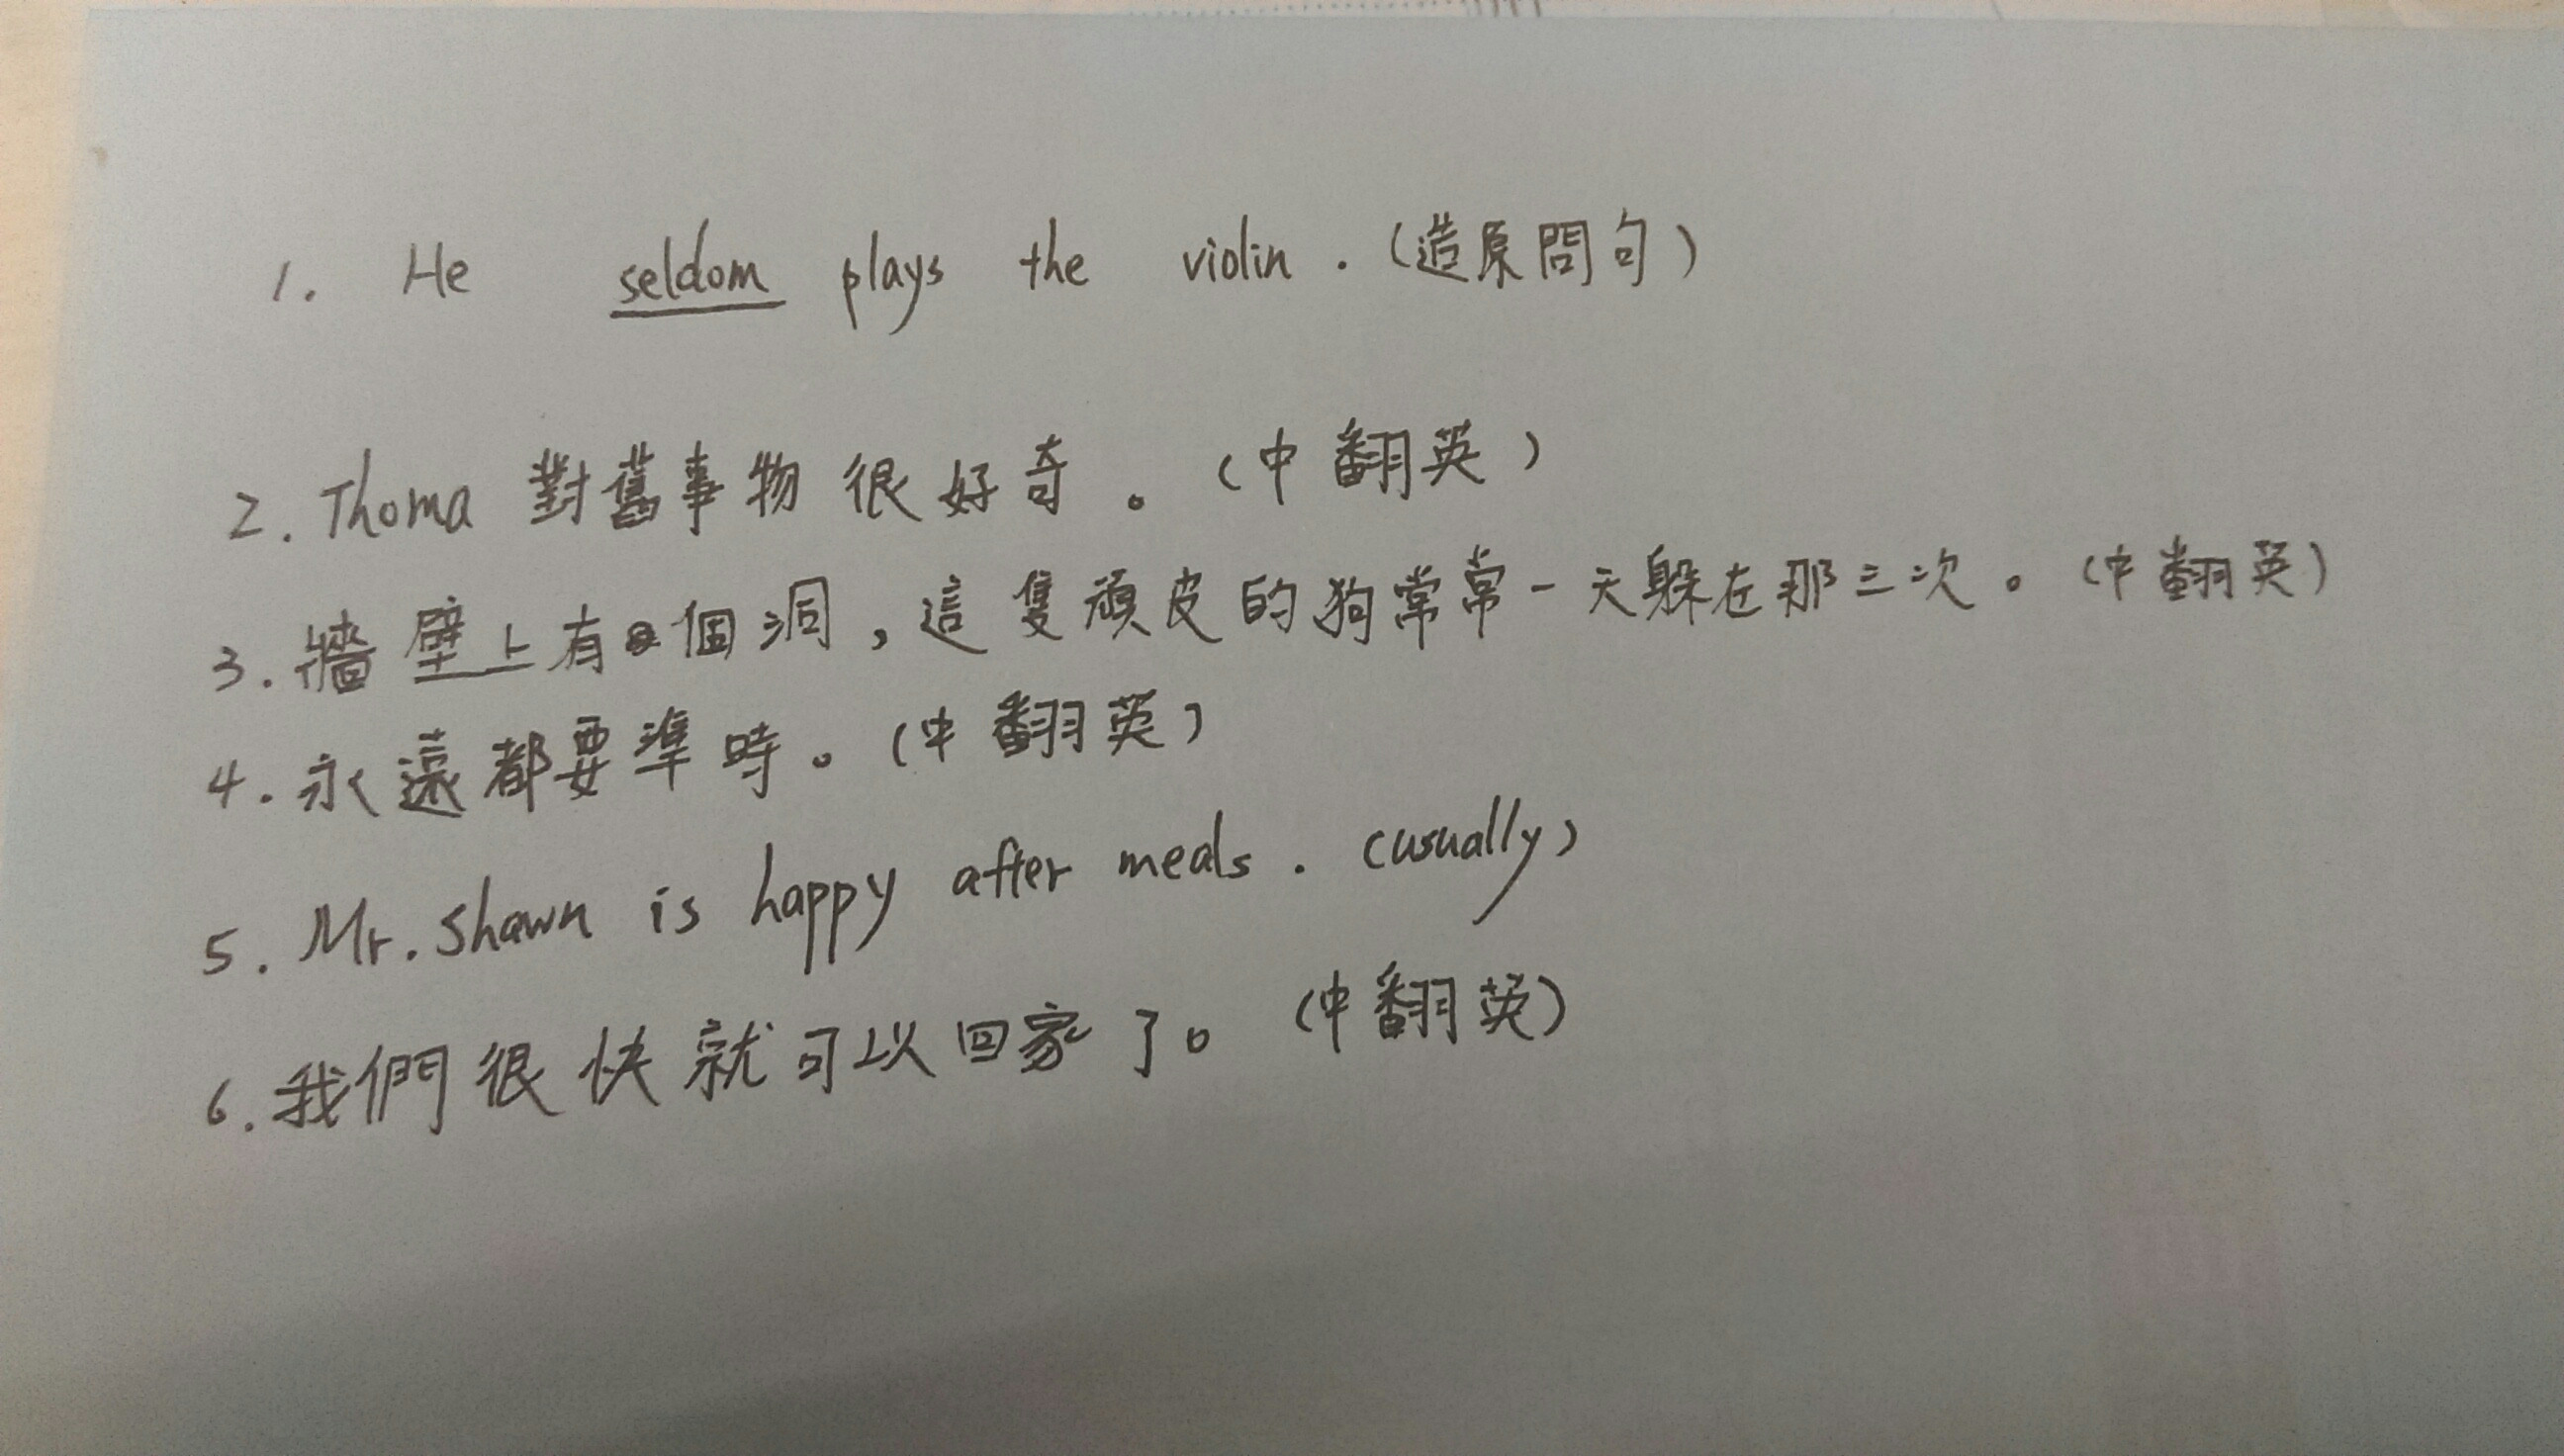 1. He seldom plays the violin. (造原問句)
2. Thoma 對舊事物很好奇。(中翻英)
3. 牆壁上有個洞,這隻頑皮的狗常常一天躲在那三次。(中翻英)
4. 永遠都要準時。(中翻英)
5. Mr. Shawn is happy after meals. (usually)
6. 我們很快就可以回家了。(中翻英)